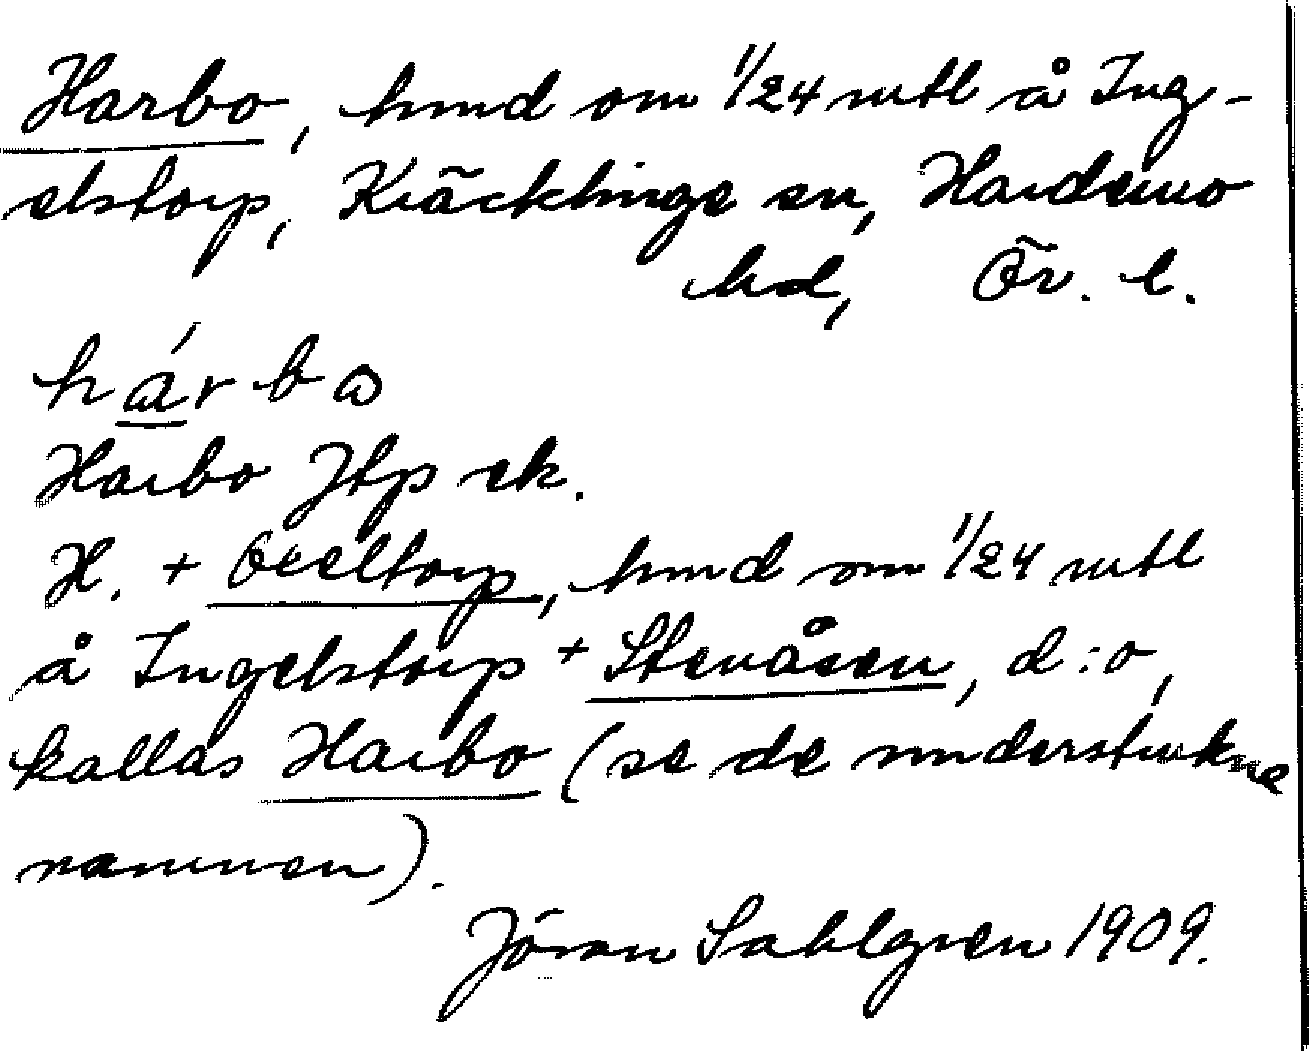 Harbo, hmd om 1/24 mtl å Ing-
elstorp, Kräcklinge sn, Hardemo
hd, Ör. l.
hárbo
Harbo Jtp ek.
H. + Öceltorp, hmd om 1/24 mtl
å Ingelstorp + Stenåsen, d:o,
kallas Harbo (se de understrukne
namnen).
Jöran Sahlgren 1909.